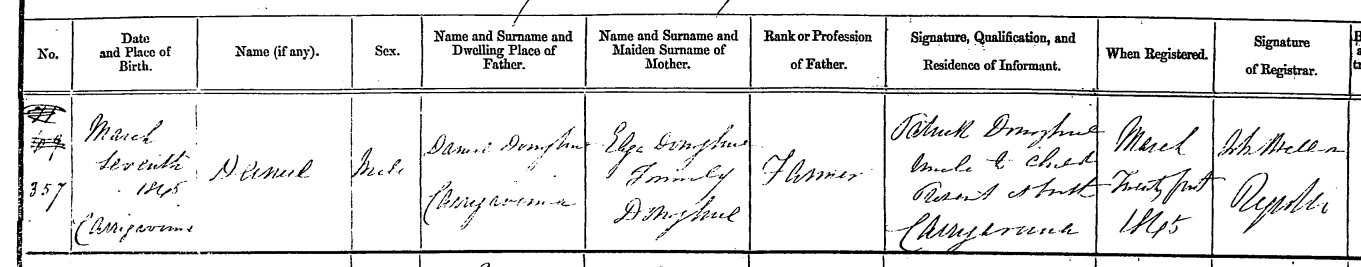 No.
Date
and Place of
Birth.
Name (if any).
Sex.
Name and Surname and
Dwelling Place of
Father.
Name and Surname and
Maiden Surname of
Mother.
Rank or Profession
of Father.
Signature, Qualification, and
Residence of Informant.
When Registered.
Signature
of Registrar.
357
March
Seventh
1865
Daniel
Male
Daniel Donoghue
Donoghue
Formerly
Donoghue
Farmer
Patrick Donoghue
uncle to child
Present at birth
March
Twenty first
1865
Registrar